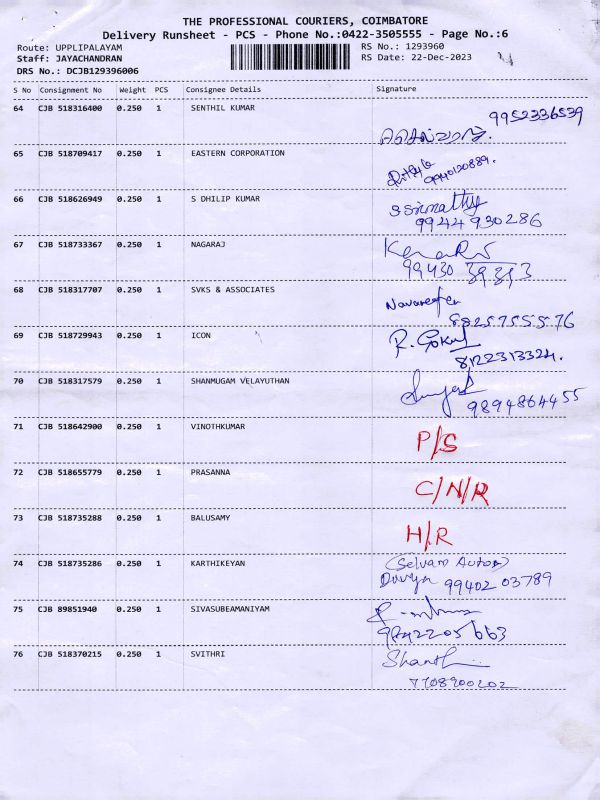 THE PROFESSIONAL COURIERS, COIMBATORE
Delivery Runsheet - PCS - Phone No.:0422-3505555 - Page No.:6
Route: UPPLIPALAYAM RS No.: 1293960
Staff: JAYACHANDRAN RS Date: 22-Dec-2023
DRS No.: DCJB129396006
S No Consignment No Weight PCS Consignee Details Signature
64 CJB 518316400 0.250 1 SENTHIL KUMAR 9952336539
65 CJB 518709417 0.250 1 EASTERN CORPORATION
9940120889.
66 CJB 518626949 0.250 1 S DHILIP KUMAR
9944930286
67 CJB 518733367 0.250 1 NAGARAJ
99430 39393
68 CJB 518317707 0.250 1 SVKS & ASSOCIATES
8825755576
69 CJB 518729943 0.250 1 ICON R. Gokul
8122313324.
70 CJB 518317579 0.250 1 SHANMUGAM VELAYUTHAN
9894864455
71 CJB 518642900 0.250 1 VINOTHKUMAR P/S
72 CJB 518655779 0.250 1 PRASANNA C/N/R
73 CJB 518735288 0.250 1 BALUSAMY H/R
74 CJB 518735286 0.250 1 KARTHIKEYAN (Selvam Autos)
Divya 99402 03789
75 CJB 89851940 0.250 1 SIVASUBEAMANIYAM
9842205663
76 CJB 518370215 0.250 1 SVITHRI Shanthi
7708900202